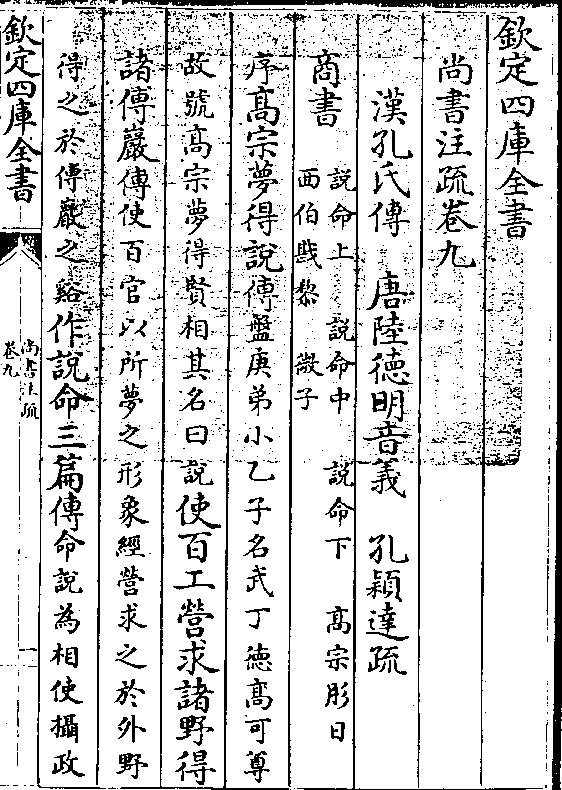 欽定四庫全書
尚書注疏卷九
漢孔氏傳　唐陸德明音義　孔穎達疏
商書
說命上　說命中　說命下　高宗肜日
西伯戡黎　微子
序高宗夢得說傳盤庚弟小乙子名武丁德高可尊
故號高宗夢得賢相其名曰說使百工營求諸野得
諸傅巖傳使百官以所夢之形象經營求之於外野
得之於傅巖之谿作說命三篇傳命說為相使攝政
欽定四庫全書
尚書注疏
卷九
一